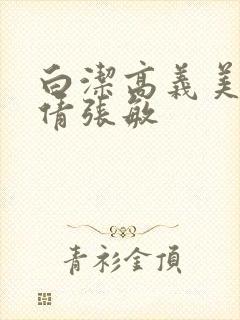 白潔高義美
倩張敏
青衫金頂